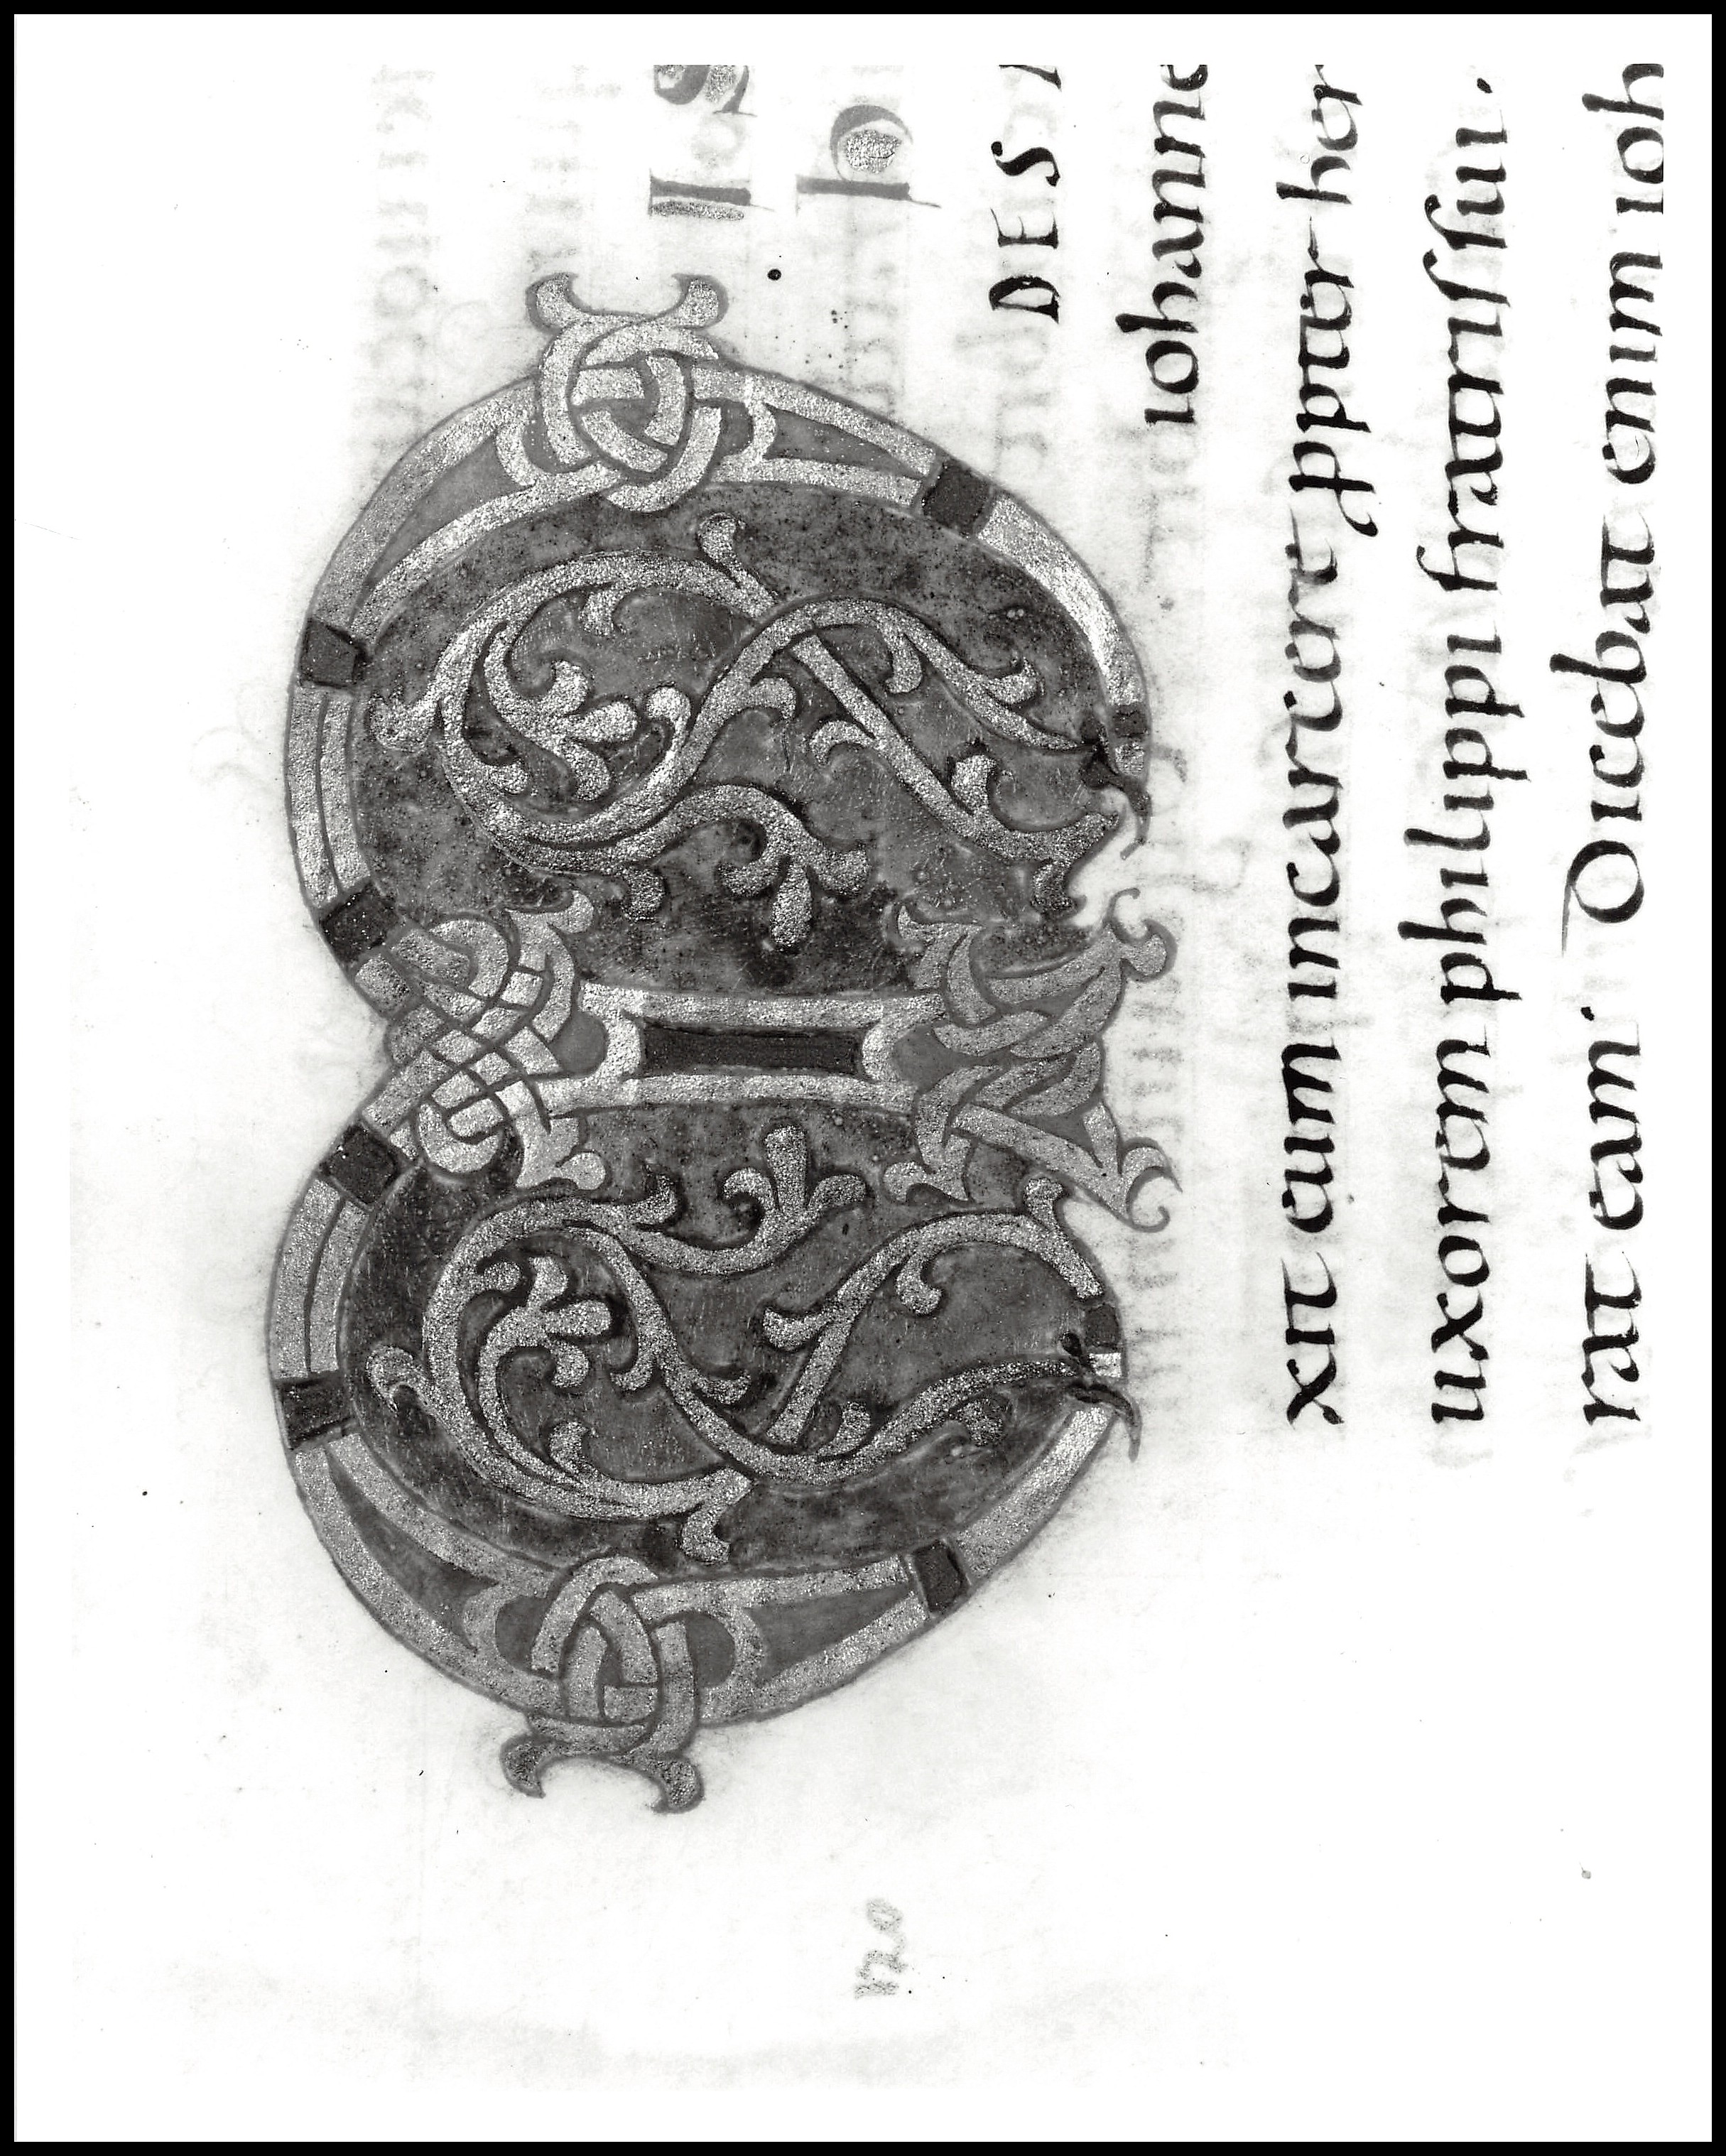 IS
DES A
iohanne
xit eum incarcere ppter her
uxorem philippi fratrissui.
rat eam. Dicebat enim ioh